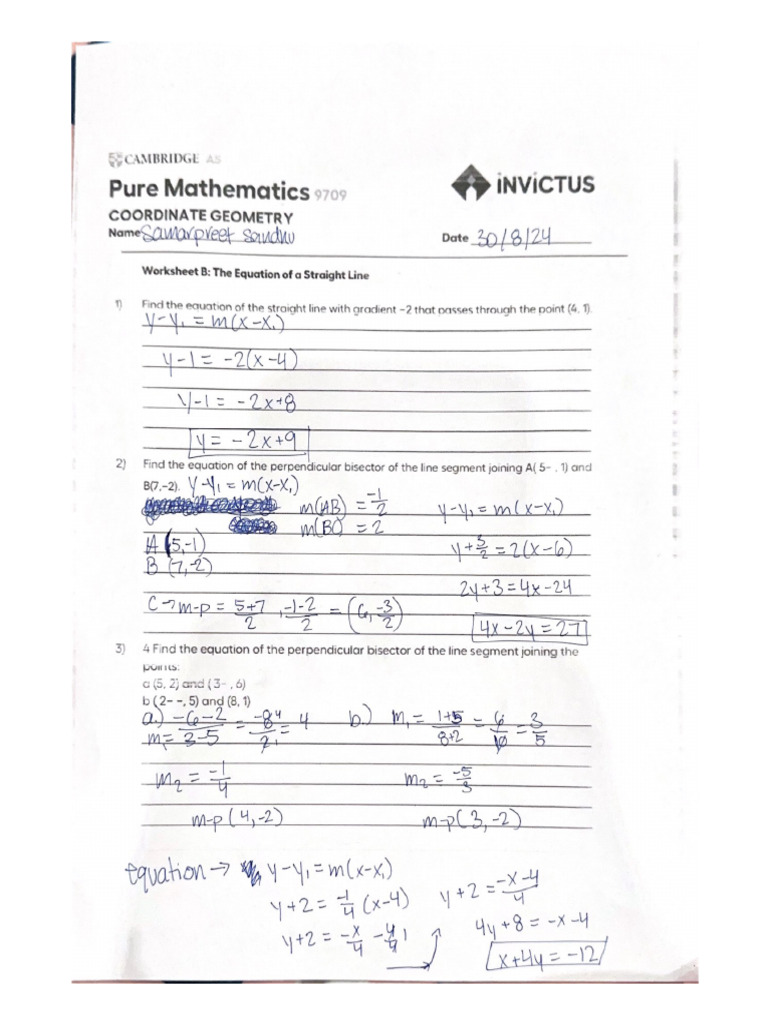 CAMBRIDGE AS
Pure Mathematics 9709
INVICTUS
COORDINATE GEOMETRY
Name Samarpreet Sandhu Date 30/8/24
Worksheet B: The Equation of a Straight Line
1) Find the equation of the straight line with gradient -2 that passes through the point (4, 1).
y-y₁ = m(x-x₁)
y-1 = -2(x-4)
y-1 = -2x+8
y = -2x+9
2) Find the equation of the perpendicular bisector of the line segment joining A( 5- , 1) and
B(7,-2). y-y₁ = m(x-x₁)
m(AB) = -1/2 y-y₁ = m(x-x₁)
m(BC) = 2
A (5,-1) y+3/2 = 2(x-6)
B (7,-2)
2y+3 = 4x-24
C → m-p = 5+7/2 , -1-2/2 = (6, -3/2)
4x-2y = 27
3) 4 Find the equation of the perpendicular bisector of the line segment joining the
points:
a (5, 2) and (3- , 6)
b (2- -, 5) and (8, 1)
a.) m₁ = -6-2/3-5 = -8/2 = 4 b.) m₁ = 1+5/8+2 = 6/10 = 3/5
m₂ = -1/4 m₂ = -5/3
m-p (4,-2) m-p(3,-2)
equation → y-y₁ = m(x-x₁)
y+2 = -1/4 (x-4) y+2 = -x-4/4
y+2 = -x/4 - 4/4 4y+8 = -x-4
x+4y = -12